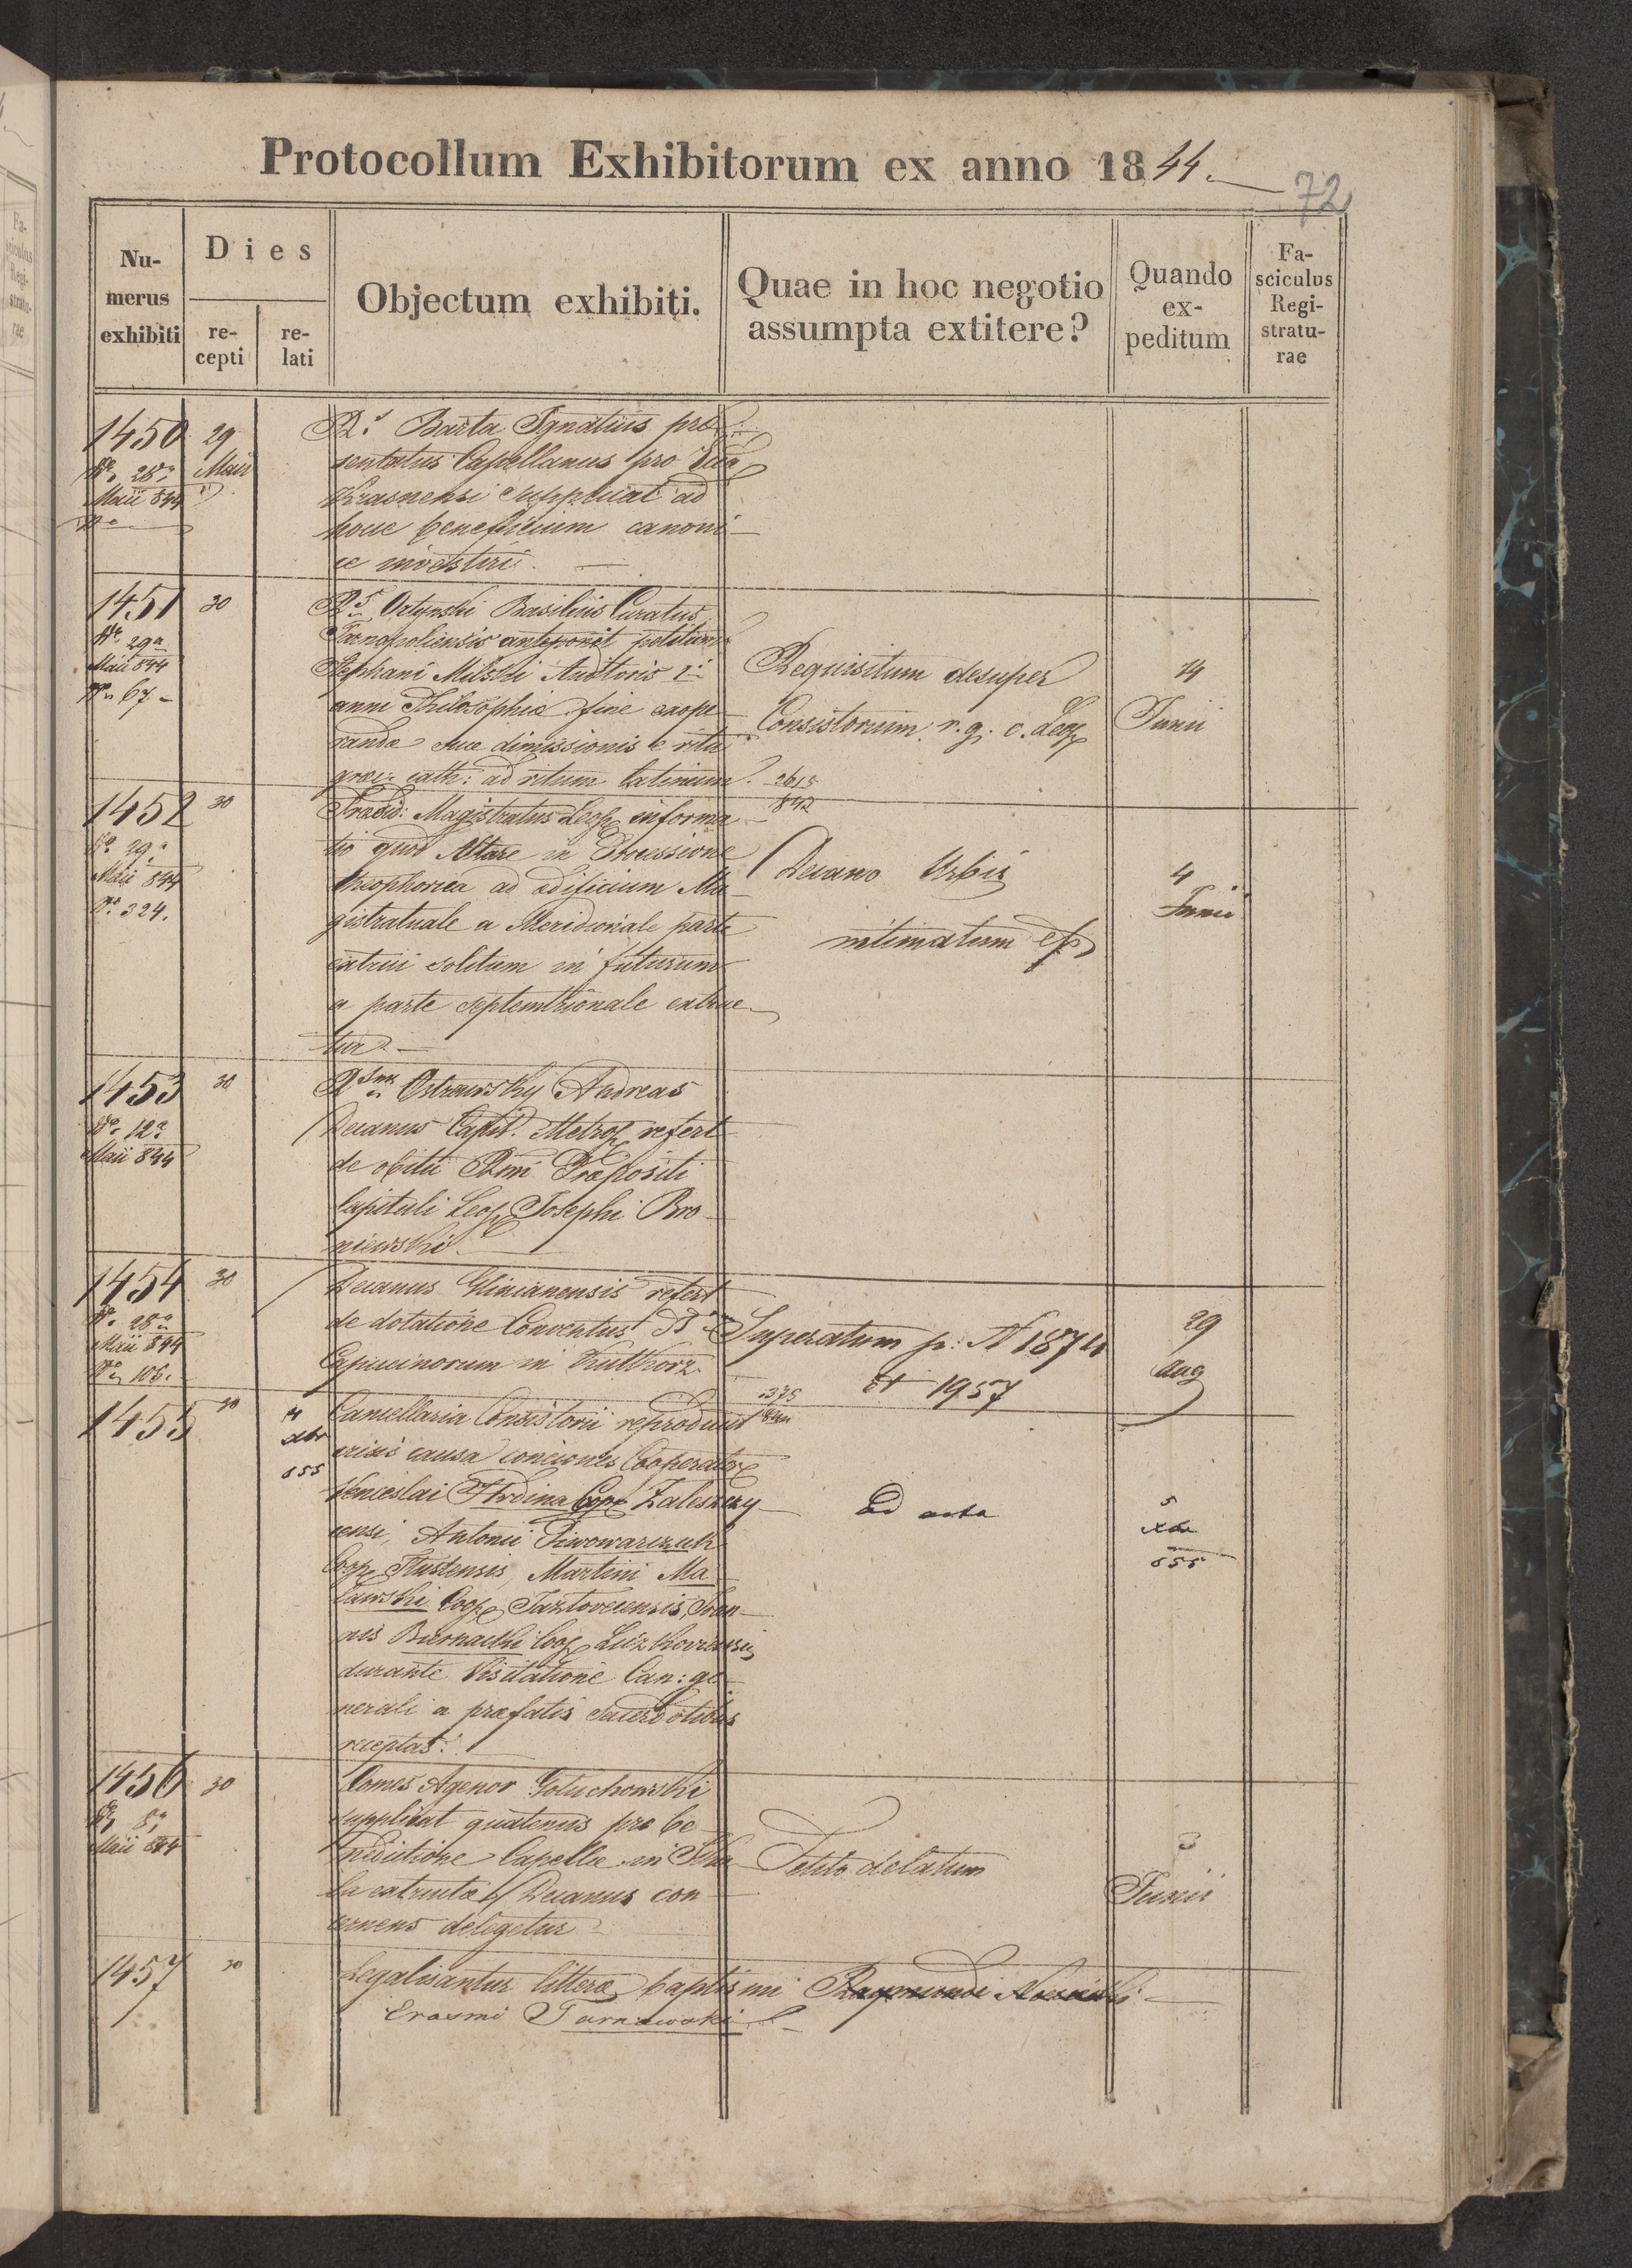 Protocollum Exhibitorum ex anno 1844.
72
Numerus exhibiti
Dies
recepti
relati
Objectum exhibiti.
Quae in hoc negotio assumpta extitere?
Quando expeditum
Fasciculus Registraturae
1450
29
Maii
28a
Maii 844
Rs Barta Ignatius prae-
sentatus Capellanus pro
Krasnensi supplicat ad
hocce beneficium canoni-
ce investiri.
1451
30
29a
Maii 844
No 67
Rs Ortynski Basilius Curatus
Tarnopoliensis anteponit petitum
Stephani Milski Auditoris 1i
anni Philosophiæ fine exope-
randæ suæ dimissionis e ritu
græc. cath: ad ritum latinum.
2615
842
Requisitum desuper
Consistorium r. g. c. Leop
4
Junii
1452
30
29a
Maii 844
No 324.
Magistratus Leop informa-
tio quod Altare in Processione
theophorica ad ædificium Ma-
gistratuale a Meridionale parte
extrui solitum in futurum
a parte septemtrionale extrue-
tur.
Decano Urbis
intimatum est
4
Junii
1453
30
12a
Maii 844
Rsmus Ostrawsky Andreas
Decanus Capit. Metrop refert
de obitu Rsmi Præpositi
Capituli Leop Josephi Bro-
niewski.
1454
30
28a
Maii 844
No 106.
Decanus Glinianensis refert
de dotatione Conventus
Capucinorum in Kutkorz.
375
Superatum p: N 1874
et 1957
29
Aug
1455
30
4
xbr
855
Cancellaria Consistorii reproducit
crisis causa conciones Cooperator
Venceslai Hrdina Coop Zaleszczy-
censi, Antonii Piwowarczuk
Coop Tlustensis, Martini Ma-
Coop Jazlovecensis, Joan-
nis Biernacki Coop
durante Visitatione Can: ge-
nerali a præfatis Sacerdotibus
receptas.
Ad acta
5
xbr
855
1456
30
8a
Maii 844
Comes Agenor Goluchowski
supplicat quatenus pro be-
nedictione Capellæ in Ska-
la extructæ Decanus con-
cernens delegetur
Petito delatum
3
Junii
1457
30
Legalisantur litteræ baptismi Raymundi
Erasmi Tarnawski